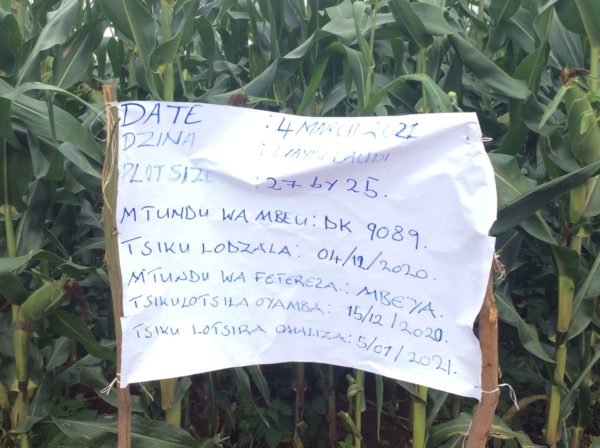 DATE : 4 MARCH 2021
DZINA : DAUDI
PLOT SIZE : 27 by 25.
MTUNDU WA MBEU: DK 9089.
TSIKU LODZALA: 04/12/2020.
MTUNDU WA FETEREZA: MBEYA.
TSIKU LOTSILA OYAMBA: 15/12/2020.
TSIKU LOTSIRA OMALIZA: 5/01/2021.